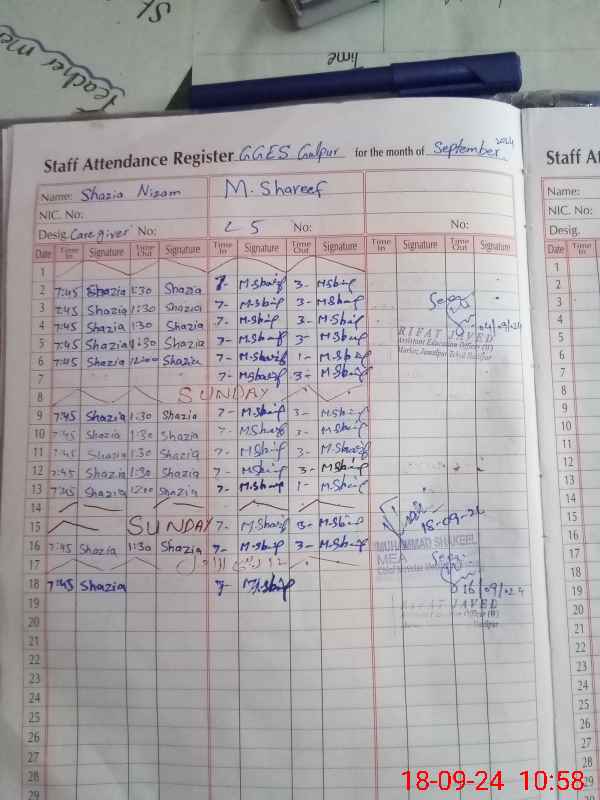 Teacher
Time
Staff Attendance Register GGES Gulpur for the month of September 2024
Staff At
Name: Shazia Nizam M. Shareef
Name:
NIC. No:
NIC. No:
Desig. Care giver No: C5 No: No:
Desig.
Date Time In Signature Time Out Signature Time In Signature Time Out Signature Time In Signature Time Out Signature
Date Time In
1
2 7:45 Shazia 1:30 Shazia 7- M.Sharif 3- M.Sharif
3 7:45 Shazia 1:30 Shazia 7- M.Sharif 3- M.Sharif
4 7:45 Shazia 1:30 Shazia 7- M.Sharif 3- M.Sharif 04/09/24
5 7:45 Shazia 1:30 Shazia 7- M.Sharif 3- M.Sharif RIFAT JAVED
Assistant Education Officer (W)
6 7:45 Shazia 12:00 Shazia 7- M.Sharif 1- M.Sharif
7 7- M.Sharif 3- M.Sharif
8 SUNDAY
9 7:45 Shazia 1:30 Shazia 7- M.Sharif 3- M.Sharif
10 7:45 Shazia 1:30 Shazia 7- M.Sharif 3- M.Sharif
11 7:45 Shazia 1:30 Shazia 7- M.Sharif 3- M.Sharif
12 7:45 Shazia 1:30 Shazia 7- M.Sharif 3- M.Sharif
13 7:45 Shazia 12:00 Shazia 7- M.Sharif 1- M.Sharif
14
15 SUNDAY 7- M.Sharif 3- M.Sharif 18-09-24
16 7:45 Shazia 1:30 Shazia 7- M.Sharif 3- M.Sharif MUHAMMAD SHAKEEL
MEA
17
18 7:45 Shazia 7- M.Sharif 16/09/024
19 RIFAT JAVED
20
21
22
23
24
25
26
27
28
29
1
2
3
4
5
6
7
8
9
10
11
12
13
14
15
16
17
18
19
20
21
22
23
24
25
26
27
28
29
18-09-24 10:58